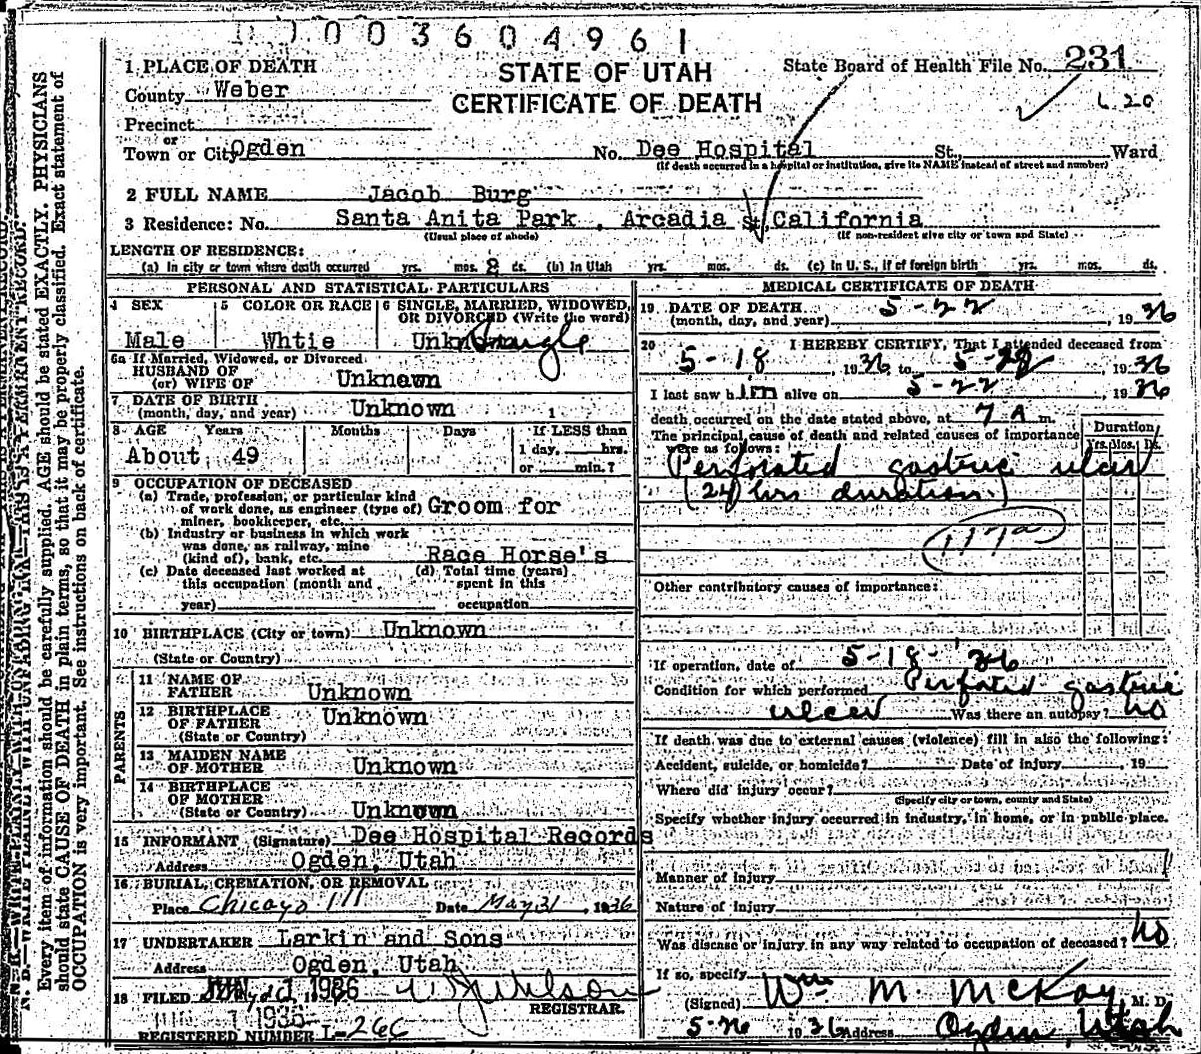 1 0 0 3 6 0 4 9 6 1
1 PLACE OF DEATH
County Weber
Precinct
or
Town or City Ogden
STATE OF UTAH
CERTIFICATE OF DEATH
State Board of Health File No. 231
No. Dee Hospital St., Ward
(If death occurred in a hospital or institution, give its NAME instead of street and number)
2 FULL NAME Jacob Burg
3 Residence: No. Santa Anita Park, Arcadia St. California
(Usual place of abode) (If non-resident give city or town and State)
LENGTH OF RESIDENCE:
(a) In city or town where death occurred yrs. mos. 8 ds. (b) In Utah yrs. mos. ds. (c) In U. S., if of foreign birth yrs. mos. ds.
PERSONAL AND STATISTICAL PARTICULARS
4 SEX
Male
5 COLOR OR RACE
Whtie
6 SINGLE, MARRIED, WIDOWED, OR DIVORCED (Write the word)
Single
6a If Married, Widowed, or Divorced
HUSBAND OF
(or) WIFE OF Unknown
7 DATE OF BIRTH
(month, day, and year) Unknown 1
8 AGE Years Months Days If LESS than
About 49 1 day, hrs.
or min.?
9 OCCUPATION OF DECEASED
(a) Trade, profession, or particular kind
of work done, as engineer (type of) Groom for
miner, bookkeeper, etc.
(b) Industry or business in which work
was done, as railway, mine
(kind of), bank, etc. Race Horse's
(c) Date deceased last worked at (d) Total time (years)
this occupation (month and spent in this
year) occupation
10 BIRTHPLACE (City or town) Unknown
(State or Country)
PARENTS
11 NAME OF
FATHER Unknown
12 BIRTHPLACE
OF FATHER Unknown
(State or Country)
13 MAIDEN NAME
OF MOTHER Unknown
14 BIRTHPLACE
OF MOTHER
(State or Country) Unknown
15 INFORMANT (Signature) Dee Hospital Records
Address Ogden, Utah
16 BURIAL, CREMATION, OR REMOVAL
Place Chicago Ill Date May 31, 1936
17 UNDERTAKER Larkin and Sons
Address Ogden, Utah
18 FILED 1936
REGISTRAR.
REGISTERED NUMBER L-266
MEDICAL CERTIFICATE OF DEATH
19 DATE OF DEATH 5-22
(month, day, and year) , 1936
20 I HEREBY CERTIFY, That I attended deceased from
5-18, 1936, to 5-22, 1936
I last saw him alive on 5-22, 1936
death occurred on the date stated above, at 7 A m.
The principal cause of death and related causes of importance
were as follows:
Duration
Yrs. Mos. Ds.
Perforated gastric ulcer
(24 hrs duration)
117a
Other contributory causes of importance:
If operation, date of 5-18-'36
Condition for which performed Perfated gastric
ulcer Was there an autopsy? no
If death was due to external causes (violence) fill in also the following:
Accident, suicide, or homicide? Date of injury , 19
Where did injury occur?
(Specify city or town, county and State)
Specify whether injury occurred in industry, in home, or in public place.
Manner of injury
Nature of injury
Was disease or injury in any way related to occupation of deceased? no
If so, specify
(Signed) Wm M. McKay, M. D.
5-26 1936 Address Ogden, Utah
Every item of information should be carefully supplied. AGE should be stated EXACTLY. PHYSICIANS
should state CAUSE OF DEATH in plain terms, so that it may be properly classified. Exact statement of
OCCUPATION is very important. See instructions on back of certificate.